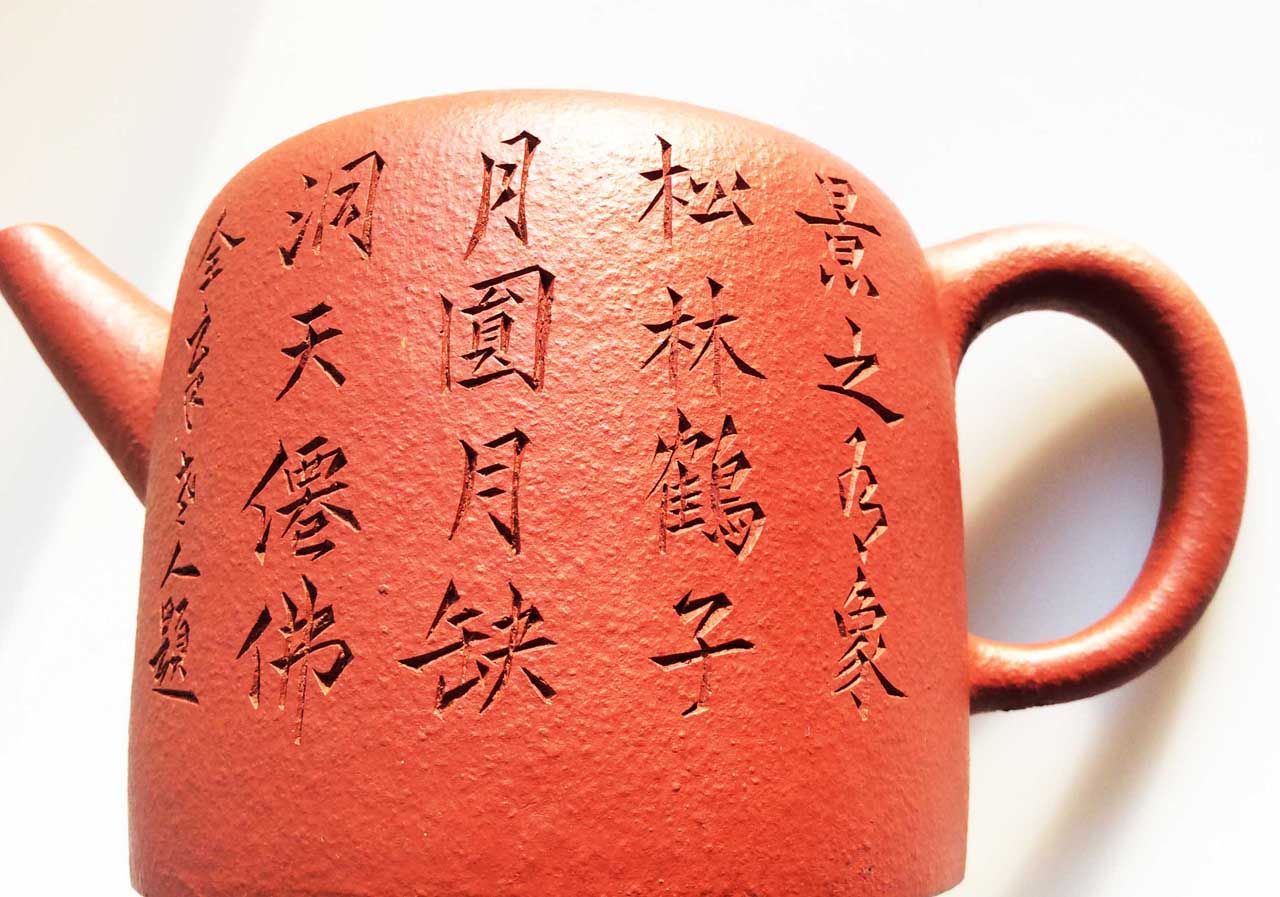 景之有象
松林鶴子
月圓月缺
洞天僊佛
老人題